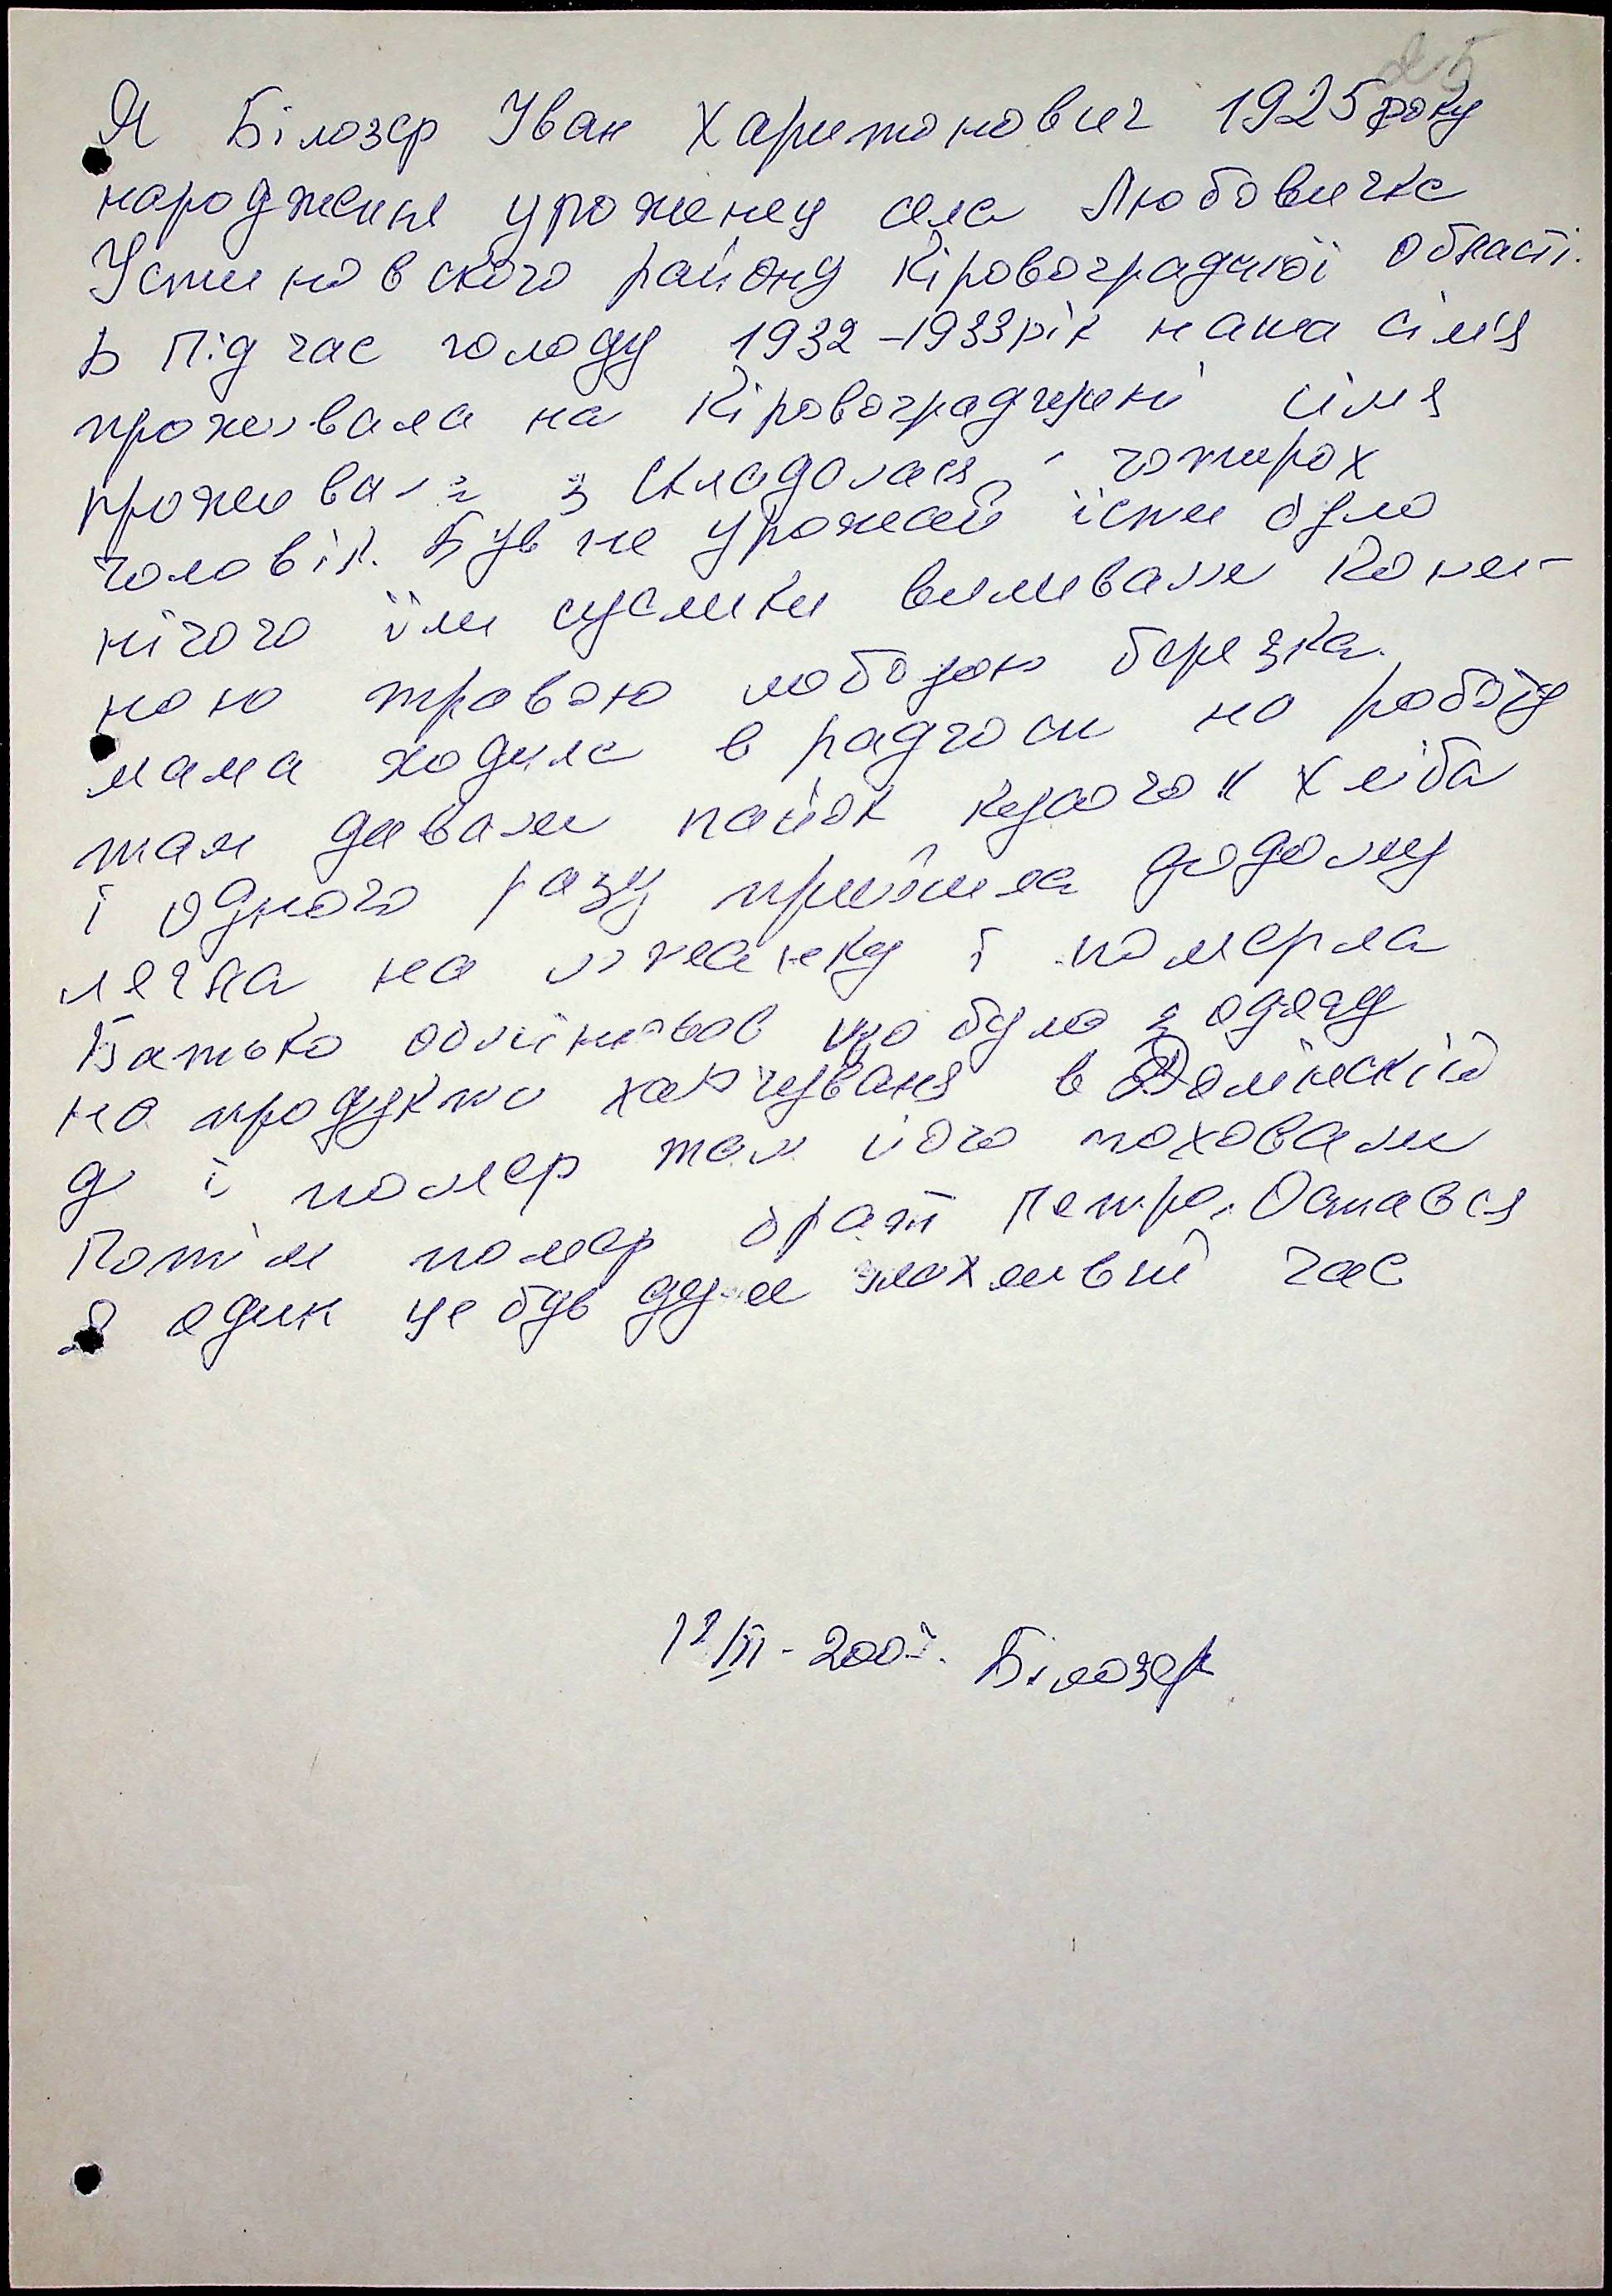 25
Я Білозер Іван Харитонович 1925 року
народження уроженец села Любовичка
Устиновского району Кіровоградчої області.
В Під час голоду 1932-1933 рік наша сімя
проживала на Кіровоградчені сімя
проживала з складолася чотирох
чоловік. Був не урожай їсти було
нічого їли суслики виливали Кони-
ною травою лободою березка.
мама ходила в радгосп на роботу
там давали пайок кусочок хліба
і одного разу прийшла додому
лягла на лежанку і померла
Батько обмінював що було з одягу
на продукти харчуваня в Долінскій
д і помер там його поховали
Потім помер брат Петро. Остався
я один це був дуже жахливий час
12/III-200 . Білозер